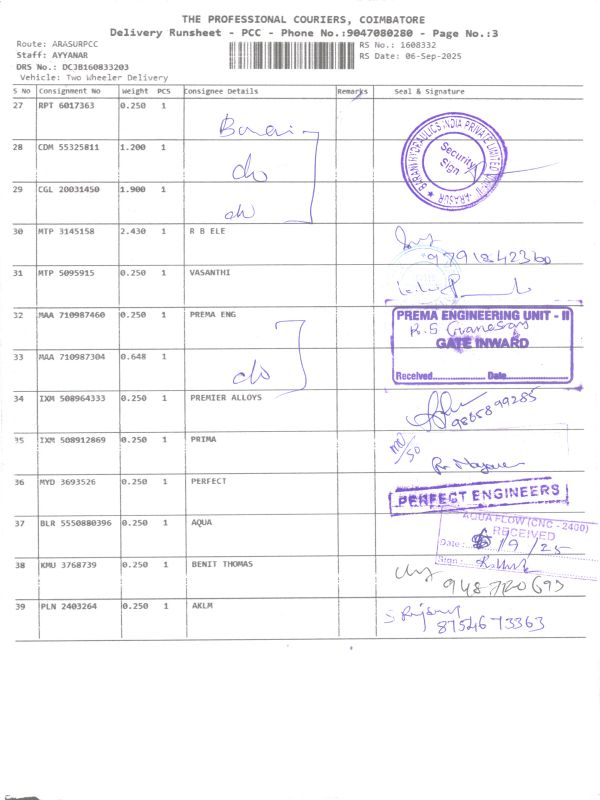 THE PROFESSIONAL COURIERS, COIMBATORE
Delivery Runsheet - PCC - Phone No.:9047080280 - Page No.:3
Route: ARASURPCC
Staff: AYYANAR
DRS No.: DCJB160833203
Vehicle: Two Wheeler Delivery
RS No.: 1608332
RS Date: 06-Sep-2025
S No Consignment No Weight PCS Consignee Details Remarks Seal & Signature
27 RPT 6017363 0.250 1
28 CDM 55325811 1.200 1 do
29 CGL 20031450 1.900 1 do
BARANI HYDRAULICS INDIA PRIVATE LIMITED
ARASUR
Security
Sign
30 MTP 3145158 2.430 1 R B ELE
9791242360
31 MTP 5095915 0.250 1 VASANTHI
32 MAA 710987460 0.250 1 PREMA ENG
PREMA ENGINEERING UNIT - II
GATE INWARD
Received................ Date................
33 MAA 710987304 0.648 1 do
34 IXM 508964333 0.250 1 PREMIER ALLOYS
9865899285
35 IXM 508912869 0.250 1 PRIMA
36 MYD 3693526 0.250 1 PERFECT
PERFECT ENGINEERS
37 BLR 5550880396 0.250 1 AQUA
AQUA FLOW (CNC - 2400)
RECEIVED
Date: 6/9/25
Sign:
38 KMU 3768739 0.250 1 BENIT THOMAS
9487720693
39 PLN 2403264 0.250 1 AKLM
8754673363